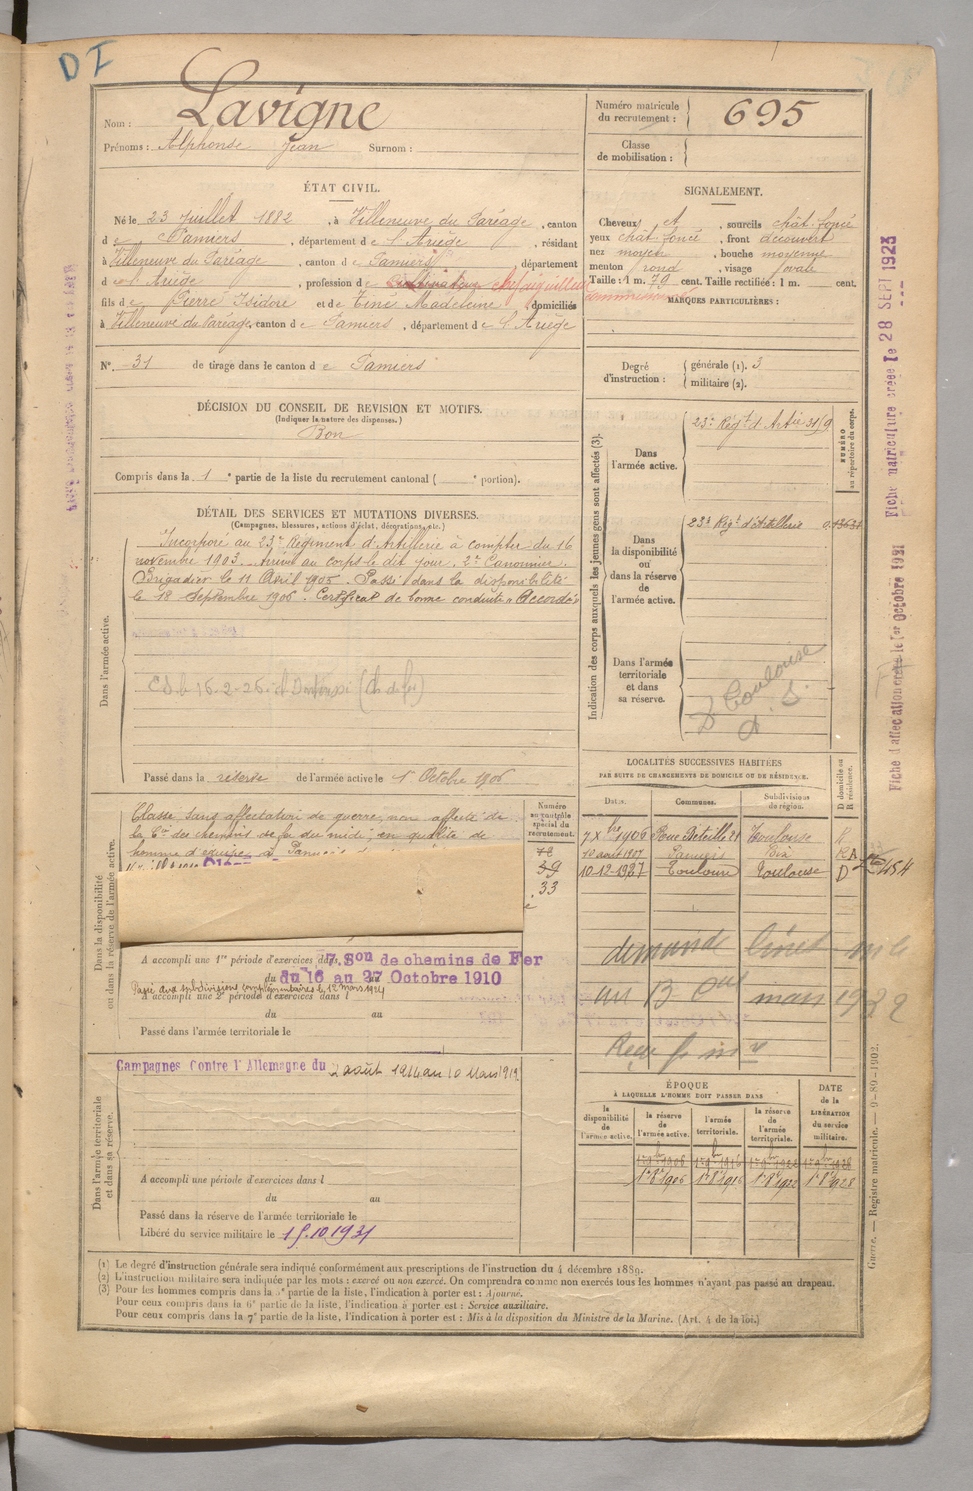 DI
Nom : Lavigne
Prénoms : Alphonse Jean Surnom :
Numéro matricule du recrutement : 695
Classe de mobilisation :
ÉTAT CIVIL.
Né le 23 Juillet 1882, à Villeneuve du Paréage, canton
de Pamiers, département de l'Ariège, résidant
à Villeneuve du Paréage, canton de Pamiers, département
de l'Ariège, profession de
fils de Pierre Isidore et de Madeleine domiciliés
à Villeneuve du Paréage, canton de Pamiers, département de l'Ariège
N° 31 de tirage dans le canton de Pamiers
DÉCISION DU CONSEIL DE REVISION ET MOTIFS.
(Indiquer la nature des dispenses.)
Bon
Compris dans la 1e partie de la liste du recrutement cantonal ( e portion).
SIGNALEMENT.
Cheveux et , sourcils chât foncé
yeux chât foncé , front découvert
nez moyen , bouche moyenne
menton rond , visage ovale
Taille : 1 m. 79 cent. Taille rectifiée : 1 m. cent.
MARQUES PARTICULIÈRES :
Degré d'instruction :
générale (1). 3
militaire (2).
DÉTAIL DES SERVICES ET MUTATIONS DIVERSES.
(Campagnes, blessures, actions d'éclat, décorations, etc.)
Dans l'armée active.
Incorporé au 23e Régiment d'Artillerie à compter du 16
novembre 1903. Arrivé au corps le dit jour. 2e Canonnier.
Brigadier le 11 Avril 1905. Passé dans la disponibilité
le 18 Septembre 1906. Certificat de bonne conduite "Accordé"
Passé dans la réserve de l'armée active le 1er Octobre 1906
Indication des corps auxquels les jeunes gens sont affectés (3).
NUMÉRO au répertoire du corps.
Dans l'armée active.
23e Régt d'Artie
Dans la disponibilité ou dans la réserve de l'armée active.
23e Régt d'Artillerie
Dans l'armée territoriale et dans sa réserve.
Toulouse
Dans la disponibilité ou dans la réserve de l'armée active.
Classé sans affectation de guerre, non affecté de
la Cie des chemins de fer du midi, en qualité de
homme d'équipe à Pamiers
Numéro au contrôle spécial du recrutement.
59
33
A accompli une 1re période d'exercices dans
7e Son de chemins de Fer
du 16 au 27 Octobre 1910
Passé aux subdivisions complémentaires le 12 mars 1924
A accompli une 2e période d'exercices dans l
du au
Passé dans l'armée territoriale le
LOCALITÉS SUCCESSIVES HABITÉES
PAR SUITE DE CHANGEMENTS DE DOMICILE OU DE RÉSIDENCE.
Dates. Communes. Subdivisions de région. D domicile ou R résidence.
7 Xbre 1906 Toulouse R
10 août 1907 Pamiers Foix
10-12-1927 Toulouse Toulouse D
demande livret
mars 1922
Dans l'armée territoriale et dans sa réserve.
Campagnes Contre l'Allemagne du 2 août 1914 au 10 Mars 1919
A accompli une période d'exercices dans l
du au
Passé dans la réserve de l'armée territoriale le
Libéré du service militaire le 15.10.1931
ÉPOQUE
À LAQUELLE L'HOMME DOIT PASSER DANS
la disponibilité de l'armée active.
la réserve de l'armée active.
l'armée territoriale.
la réserve de l'armée territoriale.
DATE de la LIBÉRATION du service militaire.
1er 8bre 1906 1er 8bre 1916 1er 8bre 1922 1er 8bre 1928
(1) Le degré d'instruction générale sera indiqué conformément aux prescriptions de l'instruction du 4 décembre 1889.
(2) L'instruction militaire sera indiquée par les mots : exercé ou non exercé. On comprendra comme non exercés tous les hommes n'ayant pas passé au drapeau.
(3) Pour les hommes compris dans la 5e partie de la liste, l'indication à porter est : Ajourné.
Pour ceux compris dans la 6e partie de la liste, l'indication à porter est : Service auxiliaire.
Pour ceux compris dans la 7e partie de la liste, l'indication à porter est : Mis à la disposition du Ministre de la Marine. (Art. 4 de la loi.)
Fiche matriculaire créée le 28 SEPT 1923
Fiche d'affectation créée le 1er Octobre 1921
Guerre. — Registre matricule. — 9-89-1902.